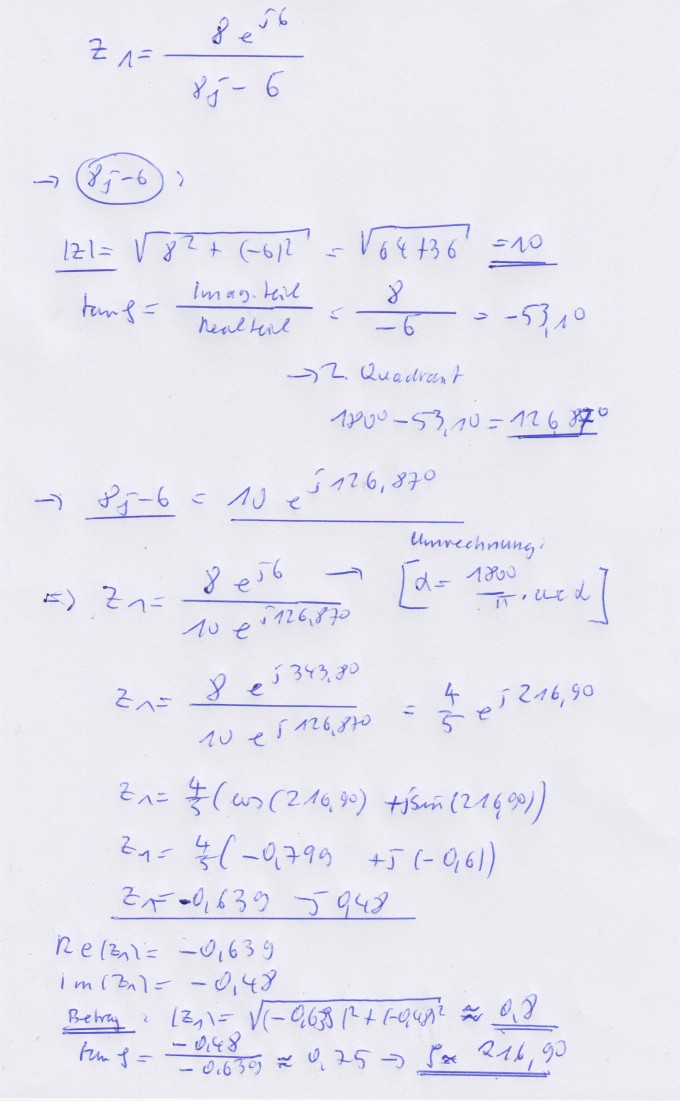 z₁ = 8 e^{j6} / (8j − 6)
→ (8j−6) :
|z| = √(8² + (−6)²) = √(64+36) = 10
tan φ = Imag.teil / Realteil = 8 / −6 = −53,1°
→ 2. Quadrant
180° − 53,1° = 126,87°
→ 8j−6 = 10 e^{j126,87°}
Umrechnung:
⇒ z₁ = 8 e^{j6} / 10 e^{j126,87°} → [α = 180° / π · arc α]
z₁ = 8 e^{j343,8°} / 10 e^{j126,87°} = 4/5 e^{j216,9°}
z₁ = 4/5 (cos(216,9°) + j sin(216,9°))
z₁ = 4/5 (−0,799 + j (−0,6))
z₁ = −0,639 − j 0,48
Re(z₁) = −0,639
Im(z₁) = −0,48
Betrag : |z₁| = √((−0,639)² + (−0,48)²) ≈ 0,8
tan φ = −0,48 / −0,639 ≈ 0,75 → φ ≈ 216,9°